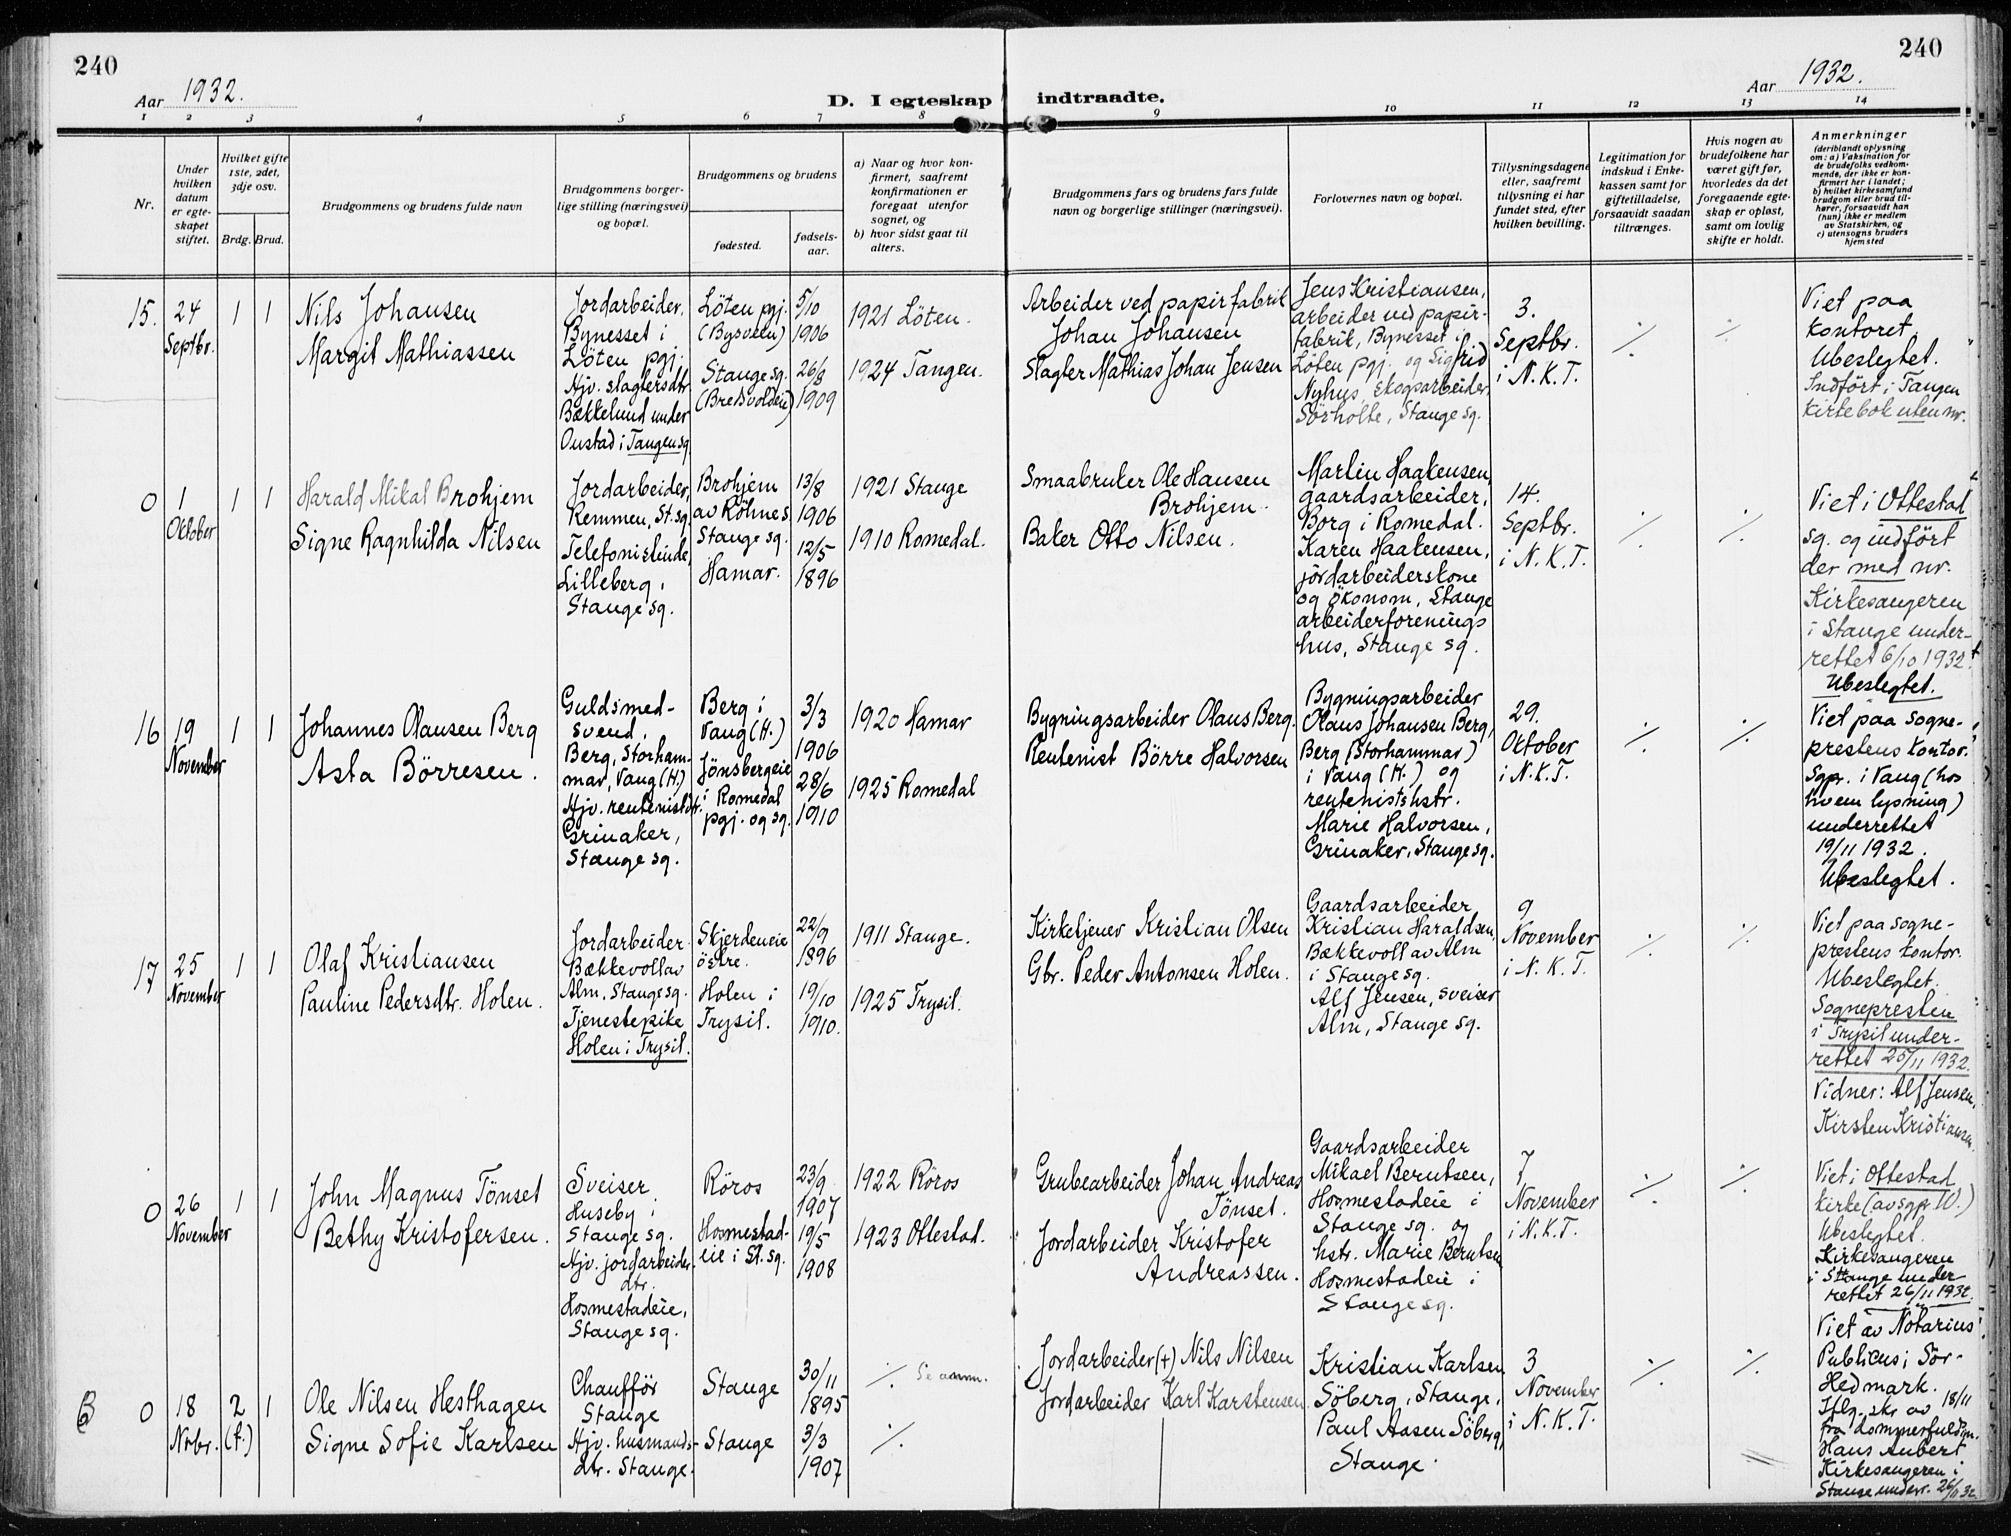 240
Aar 1932.
D. I egteskap indtraadte.
Aar 1932.
240
1 2 3 4 5 6 7 8 9 10 11 12 13 14
Nr.
Under hvilken datum er egteskapet stiftet.
Hvilket gifte 1ste, 2det, 3dje osv.
Brdg. Brud.
Brudgommens og brudens fulde navn
Brudgommens borgerlige stilling (næringsvei) og bopæl.
Brudgommens og brudens
fødested.
fødselsaar.
a) Naar og hvor konfirmert, saafremt konfirmationen er foregaat utenfor sognet, og
b) hvor sidst gaat til alters.
Brudgommens fars og brudens fars fulde navn og borgerlige stillinger (næringsvei).
Forlovernes navn og bopæl.
Tillysningsdagene eller, saafremt tillysning ei har fundet sted, efter hvilken bevilling.
Legitimation for indskud i Enkekassen samt for giftetilladelse, forsaavidt saadan tiltrænges.
Hvis nogen av brudefolkene har været gift før, hvorledes da det foregaaende egteskap er opløst, samt om lovlig skifte er holdt.
Anmerkninger
(deriblandt oplysning om: a) Vaksination for de brudefolks vedkommende, der ikke er konfirmert her i landet; b) hvilket kirkesamfund brudgom eller brud tilhører, forsaavidt han (hun) ikke er medlem av Statskirken, og c) utensogns bruders hjemsted
15.
24
Septbr.
1 1
Nils Johansen
Margit Mathiassen
Jordarbeider.
Bynesset i
Löten pgj.
Hjv. slagtersdtr.
Bækkelund under
Oustad i Tangen sg
Löten pgj.
(Bysveen)
Stange sg.
(Bredvolden)
5/10
1906
26/8
1909
1921 Löten.
1924 Tangen.
Arbeider ved papirfabrik
Johan Johansen
Slagter Mathias Johan Jensen
Jens Kristiansen,
arbeider ved papir-
fabrik, Bynesset i
Löten pgj. og Sigfrid
Nyhus, skogsarbeider,
Sörholte, Stange sg.
3.
Septbr.
i N.K.T.
./.
./.
Viet paa
kontoret.
Ubeslegtet.
Indfört i Tangen
kirkebok uten nr.
0
1
Oktober
1 1
Harald Mikal Brohjem
Signe Ragnhilda Nilsen
Jordarbeider,
Remmen, St.sg.
Telefonistinde,
Lilleberg,
Stange sg.
Brohjem
av Röhnes
Stange sg.
Hamar.
13/8
1906
12/5
1896
1921 Stange
1910 Romedal.
Smaabruker Ole Hansen
Brohjem.
Baker Otto Nilsen.
Martin Haakensen,
gaardsarbeider,
Borg i Romedal.
Karen Haakensen,
jördarbeiderskone
og ökonom, Stange
arbeiderforenings
hus, Stange sg.
14.
Septbr.
i N.K.T.
./.
./.
Viet i Ottestad
sg. og indfört
der med nr.
Kirkesangeren
i Stange under-
rettet 6/10 1932.
Ubeslegtet.
16
19
November
1 1
Johannes Olausen Berg
Asta Börresen.
Guldsmed-
svend,
Berg, Storham-
mar, Vang (H)
Hjv. rentenistdtr.
Grinaker,
Stange sg.
Berg i
Vang (H.)
Jönsbergeie
i Romedal
pgj. og sg.
3/3
1906
28/6
1910
1920 Hamar
1925 Romedal
Bygningsarbeider Olaus Berg.
Rentenist Börre Halvorsen
Bygningsarbeider
Olaus Johansen Berg,
Berg (Storhammar)
i Vang (H.) og
rentenistshstr.
Marie Halvorsen,
Grinaker, Stange sg.
29.
Oktober
i N.K.T.
./.
./.
Viet paa sogne-
prestens kontor.
Sgpr. i Vang (hos
hvem lysning)
underrettet
19/11 1932.
Ubeslegtet.
17
25
November
1 1
Olaf Kristiansen
Pauline Pedersdtr. Holen.
Jordarbeider.
Bækkevoll av
Alm, Stange sg.
Tjenestepike
Holen i Trysil.
Skjerdeneie
östre.
Holen i
Trysil.
22/9
1896
19/10
1910.
1911 Stange.
1925 Trysil.
Kirketjener Kristian Olsen
Gbr. Peder Antonsen Holen.
Gaardsarbeider
Kristian Haraldsen,
Bækkevoll av Alm
i Stange sg.
Alf Jensen, sveiser
Alm, Stange sg.
9
November
i N.K.T.
./.
./.
Viet paa sogne-
prestens kontor.
Ubeslegtet.
Sognepresten
i Trysil under-
rettet 25/11 1932.
Vidner: Alf Jensen,
Kirsten Kristiansen
0
26
November
1 1
John Magnus Tönset
Bethy Kristofersen.
Sveiser
Huseby i
Stange sg.
Hjv. jordarbeider
dtr.
Hosmestadeie,
Stange sg.
Röros
Hosmestad-
eie i St. sg.
23/9
1907
19/5
1908
1922 Röros
1923 Ottestad.
Grubearbeider Johan Andreas
Tönset.
Jordarbeider Kristofer
Andreassen.
Gaardsarbeider
Mikael Berntsen,
Hosmestadeie i
Stange sg. og
hstr. Marie Berntsen
Hosmestadeie i
Stange sg.
7
November
i N.K.T.
./.
./.
Viet i Ottestad
kirke (av sgpr W.)
Ubeslegtet.
Kirkesangeren
i Stange under
rettet 26/11 1932.
B
0
18
Novbr.
2 1
(f.)
Ole Nilsen Hesthagen
Signe Sofie Karlsen
Chaufför
Stange
Hjv. husmands-
dtr. Stange.
Stange
Stange
30/11
1895
3/3
1907
./. Se anm.
./.
Jordarbeider (+) Nils Nilsen
Jordarbeider Karl Karstensen
Kristian Karlsen
Söberg, Stange,
Paul Aasen Söberg,
Stange.
3
November
i N.K.T.
./.
./.
Viet av Notarius
Publicus i Sör-
Hedmark.
Iflg. skr. av 18/11
fra dommerfuldm.
Hans Aubert
Kirkesangeren i
Stange underr. 26/11 32